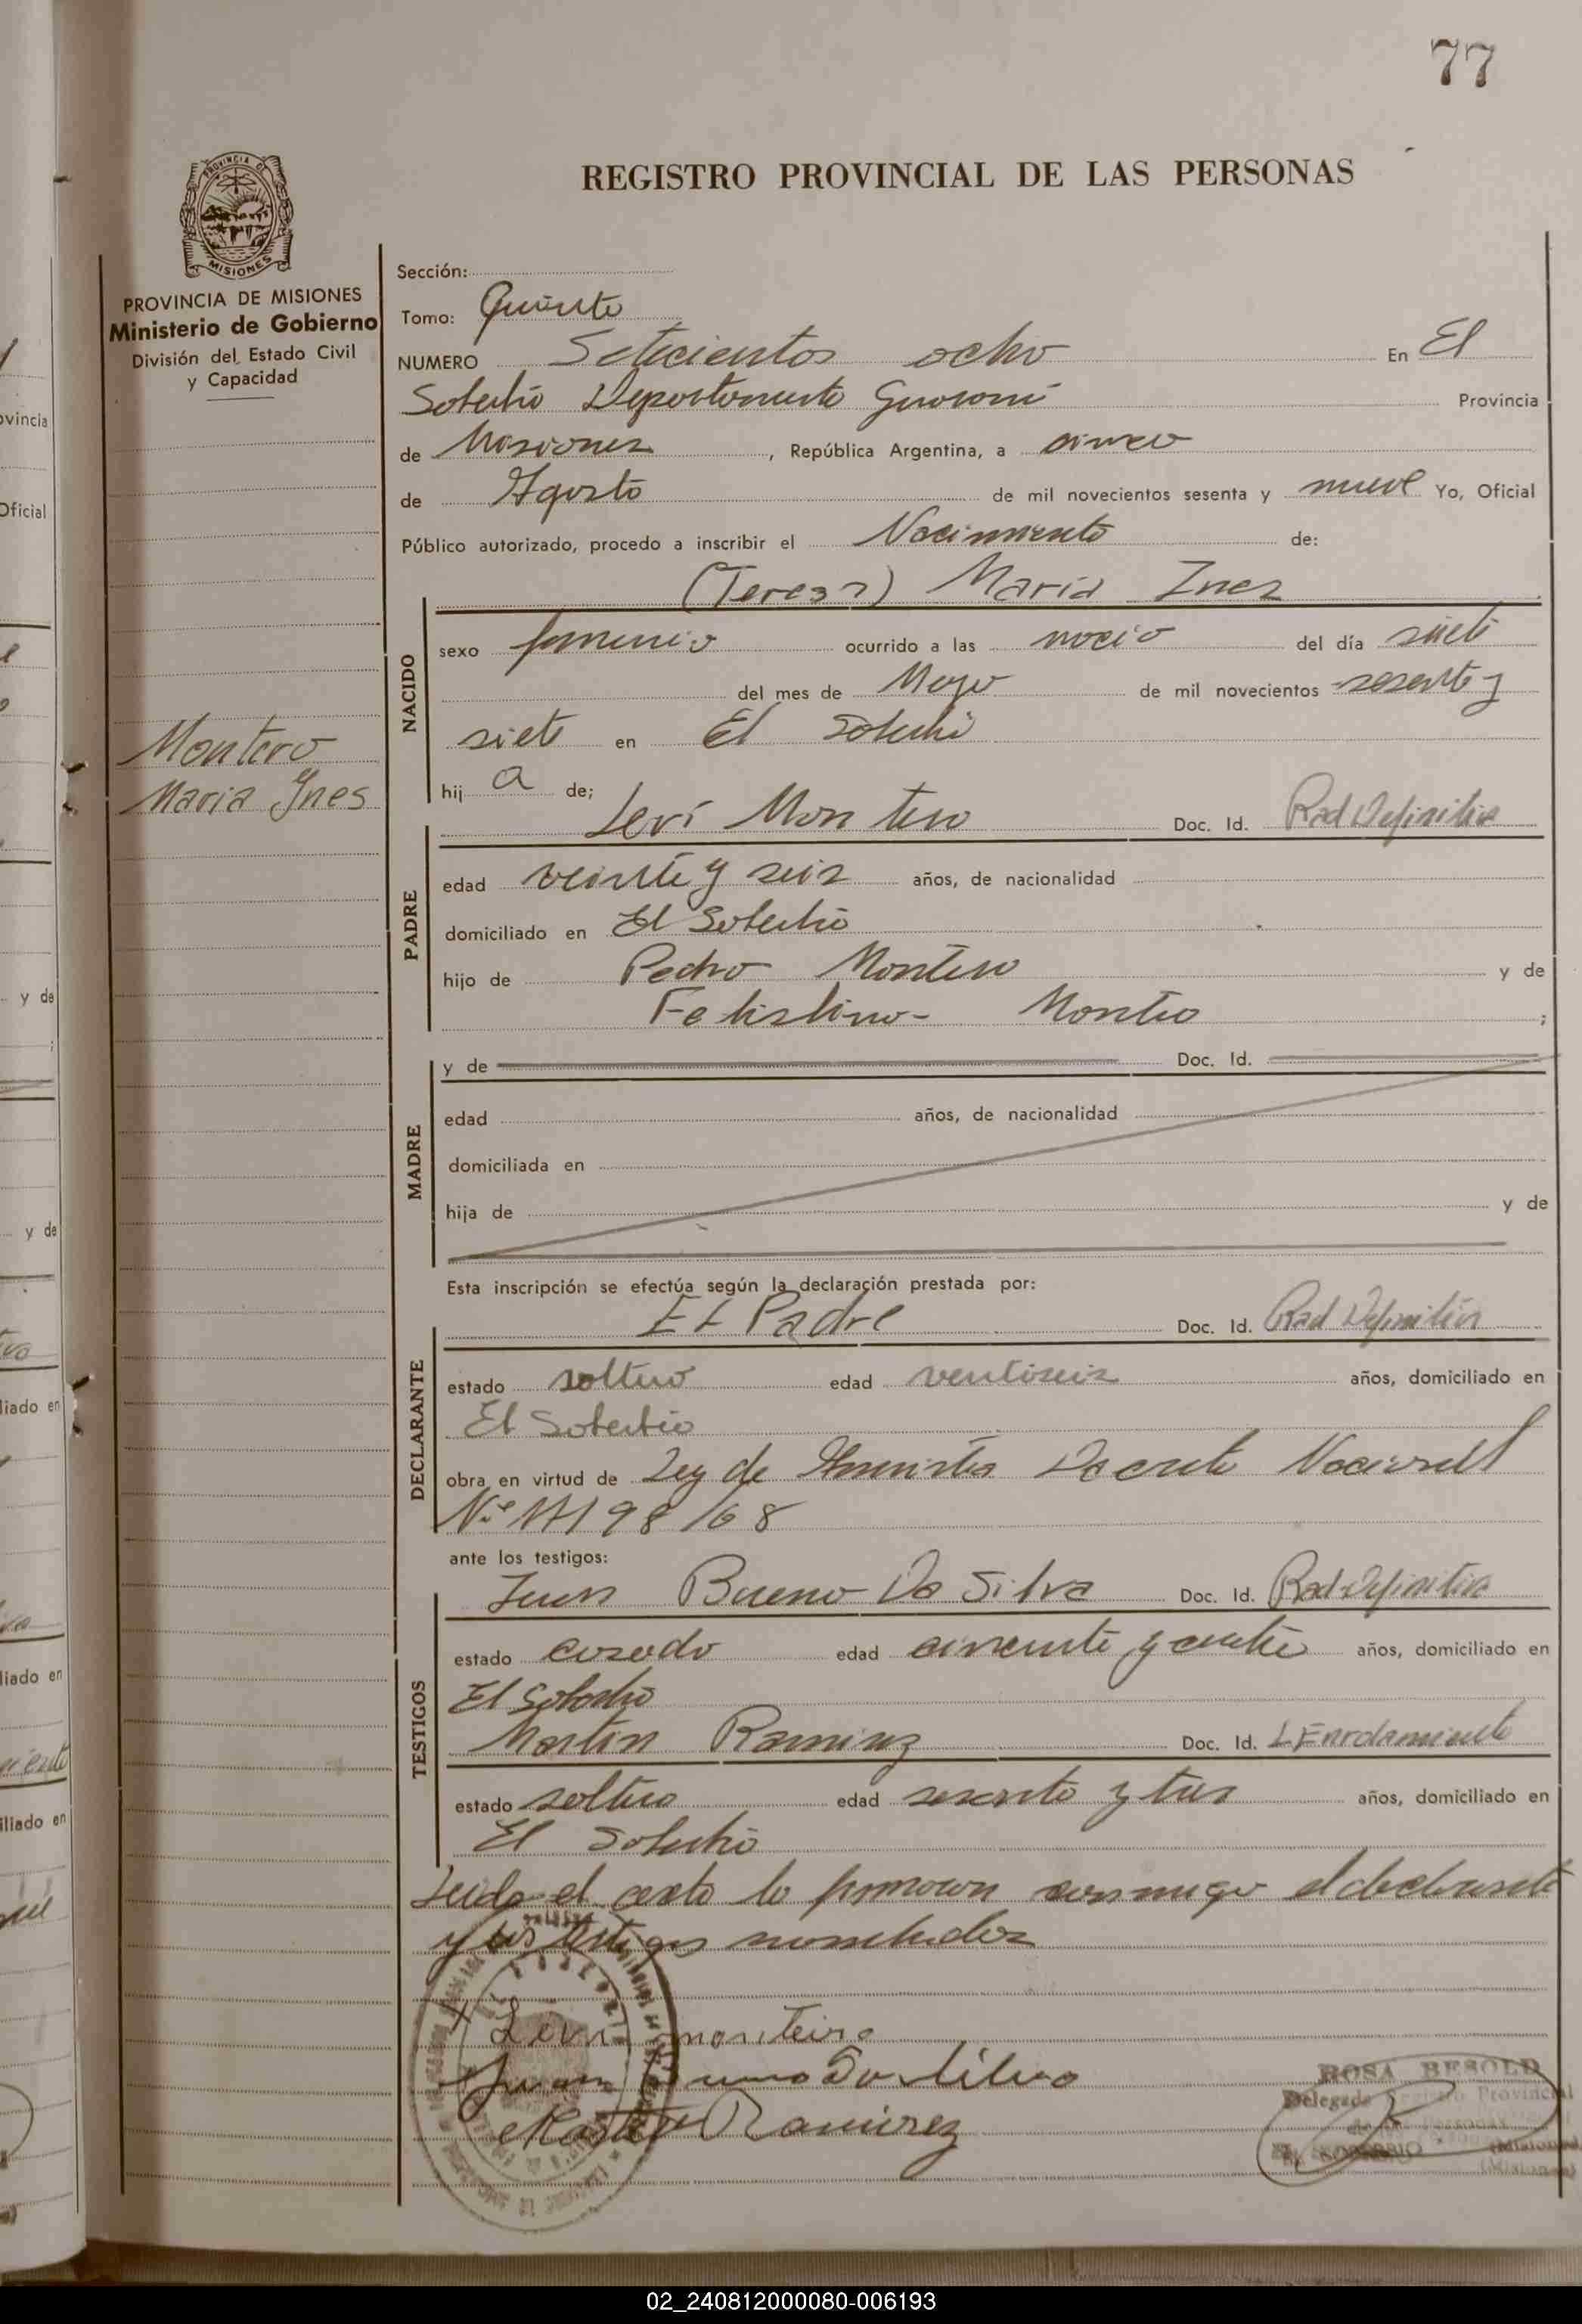 77
REGISTRO PROVINCIAL DE LAS PERSONAS
PROVINCIA DE MISIONES
Ministerio de Gobierno
División del Estado Civil
y Capacidad
Montero
Maria Ynes
Sección:
Tomo: Quinto
NUMERO Setecientos ocho En El
Soberbio Departamento Guaraní Provincia
de Misiones, República Argentina, a cinco
de Agosto de mil novecientos sesenta y nueve Yo, Oficial
Público autorizado, procedo a inscribir el Nacimiento de:
(Teresa) Maria Ines
NACIDO
sexo femenino ocurrido a las del día siete
del mes de Mayo de mil novecientos sesenta y
siete en El Soberbio
hij a de;
Levi Montero Doc. Id. Rad Definitiva
PADRE
edad veinte y seis años, de nacionalidad
domiciliado en El Soberbio
hijo de Pedro Montero y de
Montero ;
MADRE
y de Doc. Id.
edad años, de nacionalidad
domiciliada en
hija de y de
Esta inscripción se efectúa según la declaración prestada por:
El Padre Doc. Id. Rad Definitiva
DECLARANTE
estado soltero edad ventiseis años, domiciliado en
El Soberbio
obra en virtud de Ley de Amnistia Decreto Nacional
Nº 17198/68
ante los testigos:
Juan Bueno Da Silva Doc. Id. Rad Definitiva
TESTIGOS
estado casado edad años, domiciliado en
El Soberbio
Martin Ramirez Doc. Id. L Enrolamiento
estado soltero edad sesenta y tres años, domiciliado en
El Soberbio
Leida el acta la firmaron conmigo el declarante
y los testigos nombrados
Levi monteiro
Juan Bueno Da Silva
Martin Ramirez
ROSA BESOLD
Delegada Registro Provincial
02_240812000080-006193